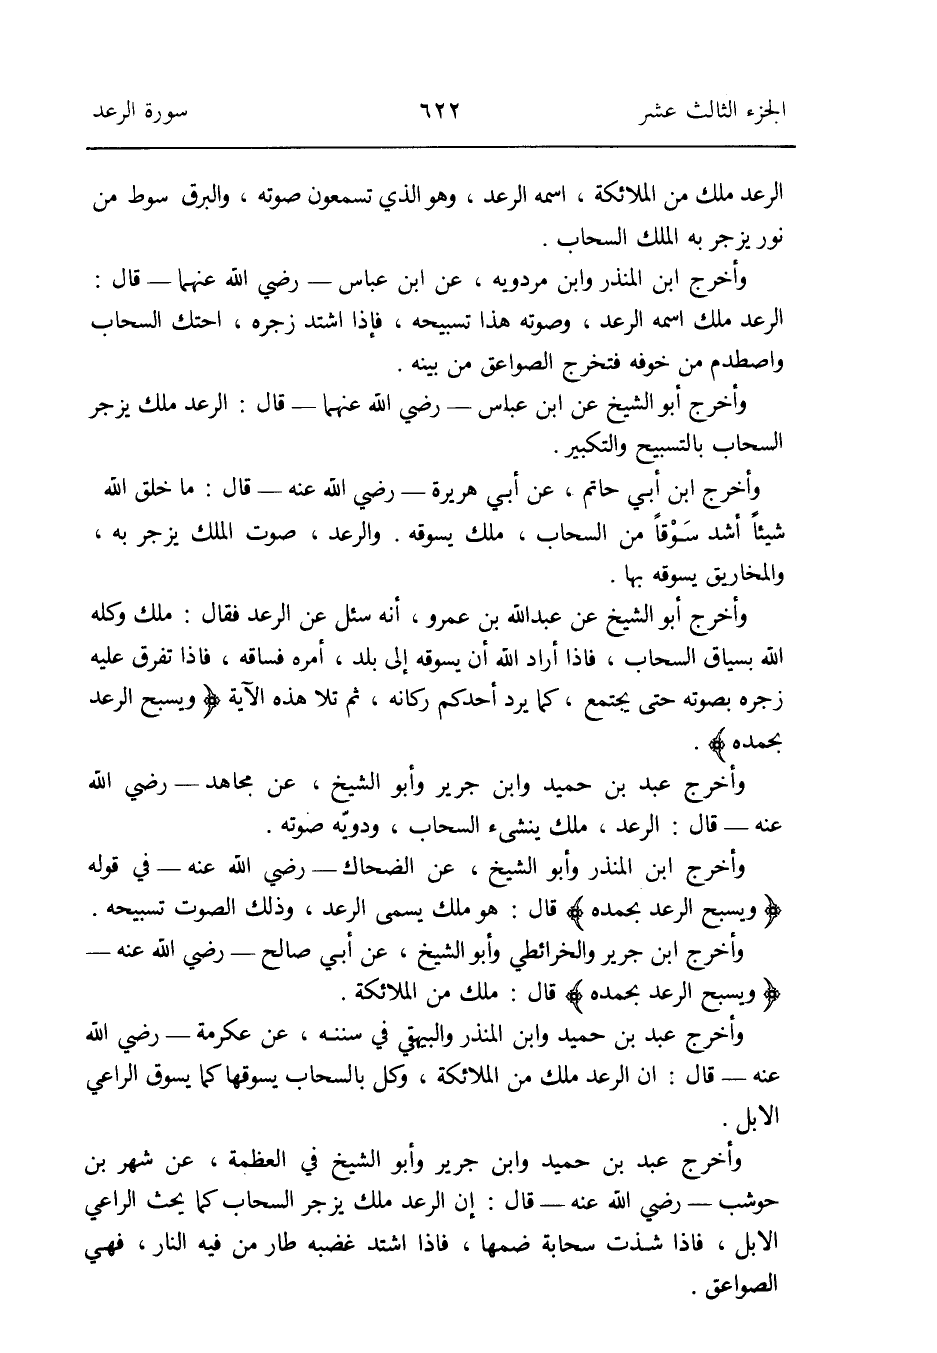 الجزء الثالث عشر ٦٢٢ سورة الرعد
الرعد ملك من الملائكة ، اسمه الرعد ، وهو الذي تسمعون صوته ، والبرق سوط من
نور يزجر به الملك السحاب .
وأخرج ابن المنذر وابن مردويه ، عن ابن عباس — رضي الله عنهما — قال :
الرعد ملك اسمه الرعد ، وصوته هذا تسبيحه ، فإذا اشتد زجره ، احتك السحاب
واصطدم من خوفه فتخرج الصواعق من بينه .
وأخرج أبو الشيخ عن ابن عباس — رضي الله عنهما — قال : الرعد ملك يزجر
السحاب بالتسبيح والتكبير .
وأخرج ابن أبي حاتم ، عن أبي هريرة — رضي الله عنه — قال : ما خلق الله
شيئاً أشد سَوْقاً من السحاب ، ملك يسوقه . والرعد ، صوت الملك يزجر به ،
والمخاريق يسوقه بها .
وأخرج أبو الشيخ عن عبدالله بن عمرو ، أنه سئل عن الرعد فقال : ملك وكله
الله بسياق السحاب ، فاذا أراد الله أن يسوقه إلى بلد ، أمره فساقه ، فاذا تفرق عليه
زجره بصوته حتى يجتمع ، كما يرد أحدكم ركانه ، ثم تلا هذه الآية ﴿ ويسبح الرعد
بحمده ﴾ .
وأخرج عبد بن حميد وابن جرير وأبو الشيخ ، عن مجاهد — رضي الله
عنه — قال : الرعد ، ملك ينشىء السحاب ، ودويّه صوته .
وأخرج ابن المنذر وأبو الشيخ ، عن الضحاك — رضي الله عنه — في قوله
﴿ ويسبح الرعد بحمده ﴾ قال : هو ملك يسمى الرعد ، وذلك الصوت تسبيحه .
وأخرج ابن جرير والخرائطي وأبو الشيخ ، عن أبي صالح — رضي الله عنه —
﴿ ويسبح الرعد بحمده ﴾ قال : ملك من الملائكة .
وأخرج عبد بن حميد وابن المنذر والبيهقي في سننه ، عن عكرمة — رضي الله
عنه — قال : ان الرعد ملك من الملائكة ، وكل بالسحاب يسوقها كما يسوق الراعي
الابل .
وأخرج عبد بن حميد وابن جرير وأبو الشيخ في العظمة ، عن شهر بن
حوشب — رضي الله عنه — قال : إن الرعد ملك يزجر السحاب كما يحث الراعي
الابل ، فاذا شذت سحابة ضمها ، فاذا اشتد غضبه طار من فيه النار ، فهي
الصواعق .